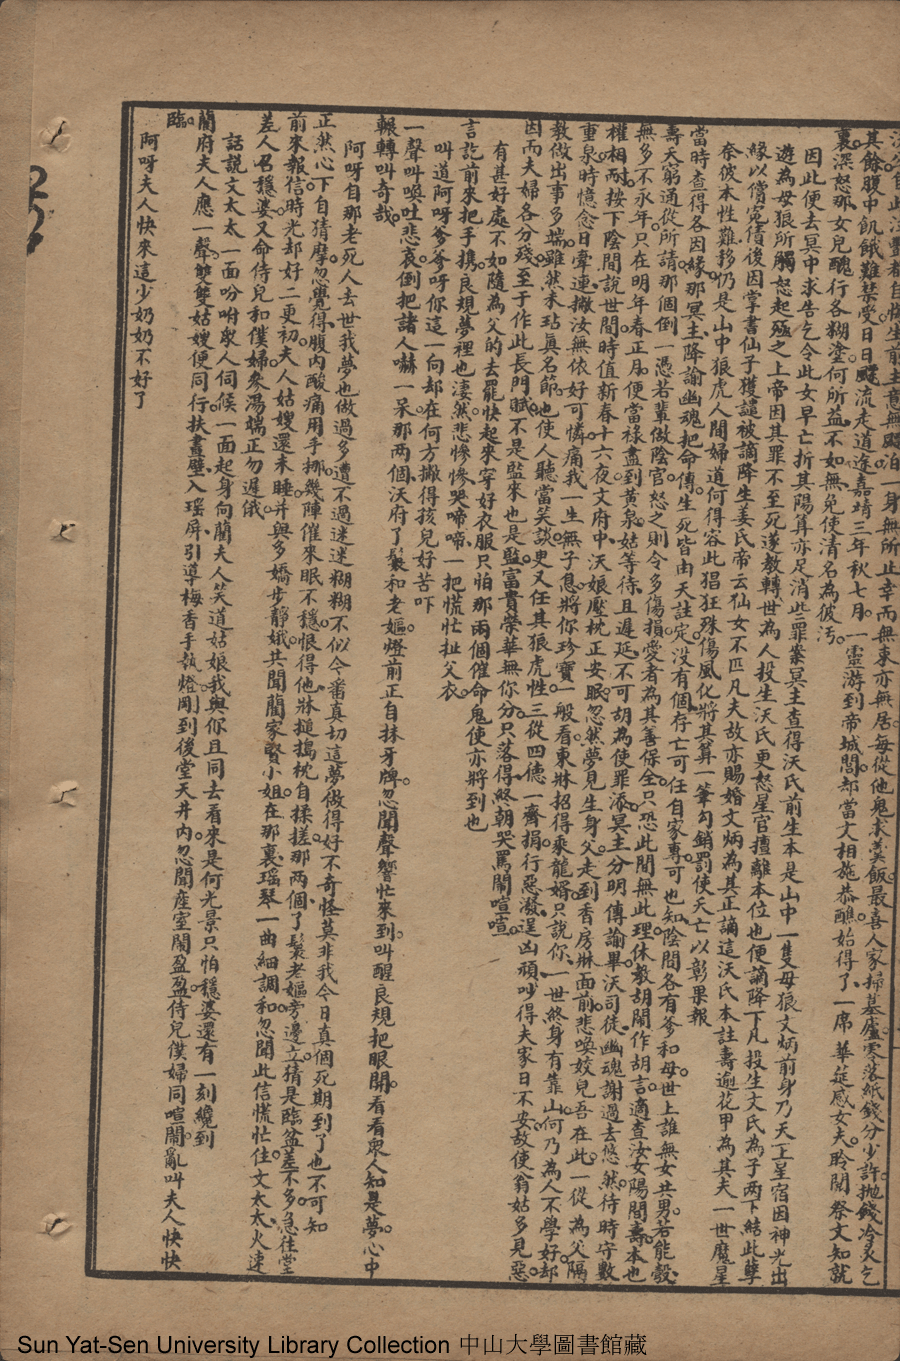 其餘腹中飢餓難禁受日日飃流走道途嘉靖三年秋七月一靈游到帝城閭却當文相施恭醮始得了一席華筵感女夫聆閱祭文知就
裏深怒那女兒醜行各糊塗何所益不如無免使清名為彼汚
因此便去冥中求告乞令此女早亡折其陽莫亦足消些罪業冥主查得沃氏前生本是山中一隻母狼文炳前身乃天上星宿因神光出
遊為母狼所觸怒起殛之上帝因其罪不至死遂教轉世為人投生沃氏更怒星官擅離本位也便謫降下凡投生文氏為子兩下結此孽
緣以償寃債後因掌書仙子獲譴被謫降生姜氏帝云仙女不匹凡夫故亦賜婚文炳為其正謫這沃氏本註壽逾花甲為其夫一世魔星
奈彼本性難移仍是山中狼虎人間婦道何得容此猖狂殊傷風化將其算一筆勾銷罰使夭亡以彰果報
當時查得各因緣那冥主降諭幽魂把命傳生死皆由天註定没有個存亡可任自家專可也知陰間各有爹和母世上誰無女共男若能彀
壽夭窮通從所請那個倒一憑若輩做陰官怒之則令多傷損愛者為其善保全只恐此間無此理休教胡鬧作胡言適查汝女陽間壽本也
無多不永年只在明年春正月便當祿盡到黄泉姑等待且遲延不可胡為使罪添冥主分明傳諭畢沃司徒幽魂謝過去悠然待時守數
權相耐按下陰間説世間時值新春十六夜文府中沃娘壓枕正安眠忽然夢見生身父走到香房牀面前悲喚姣兒吾在此一從為父隔
重泉時憶念日牽連撇汝無依好可憐痛我一生無子息將你珍寶一般看東牀招得乘龍婿只說你一世終身有靠山何乃為人不學好却
教做出事多端雖然未玷真名節也使人聽當笑談史又任其狼虎性三從四德一齊捐行惡潑逞凶頑吵得夫家日不安故使翁姑多見惡
因而夫婦各分殘至于作此長門賦不是監來也是監富貴榮華無你分只落得終朝哭罵鬧喧喧
有甚好處不如隨為父的去罷快起來穿好衣服只怕那兩個催命鬼使亦將到也
言訖前來把手携良規夢裡也淒然悲慘慘哭啼啼一把慌忙扯父衣
叫道阿呀爹爹呀你這一向却在何方撇得孩兒好苦吓
一聲叫喚吐悲哀倒把諸人嚇一呆那兩個沃府了鬟和老嫗燈前正自抹牙牌忽聞聲響忙來到叫醒良規把眼開看看衆人知是夢心中
輾轉叫奇哉
阿呀自那老死人去世我夢也做過多遭不過迷迷糊糊不似今番真切這夢做得好不奇怪莫非我今日真個死期到了也不可知
正然心下自猜摩忽覺得腹内酸痛用手挪幾陣催來眠不穩恨得他牀搥搗枕自揉搓那两個了鬟老嫗旁邊立猜是臨盆差不多急往堂
前來報信時光却好二更初夫人姑嫂還未睡并與多嬌步靜娥共聞蘭家賢小姐在那裏瑶琴一曲細調和忽聞此信慌忙住文太太火速
差人召穩婆又命侍兒和僕婦參湯端正勿遲俄
話說文太太一面吩咐衆人伺候一面起身向蘭夫人笑道姑娘我與你且同去看來是何光景只怕穩婆還有一刻纔到
蘭府夫人應一聲雙雙姑嫂便同行扶畫壁入瑶屏引導梅香手執燈剛到後堂天井内忽聞産室鬧盈盈侍兒僕婦同喧鬧亂叫夫人快快
臨
阿呀夫人快來這少奶奶不好了
Sun Yat-Sen University Library Collection 中山大學圖書館藏